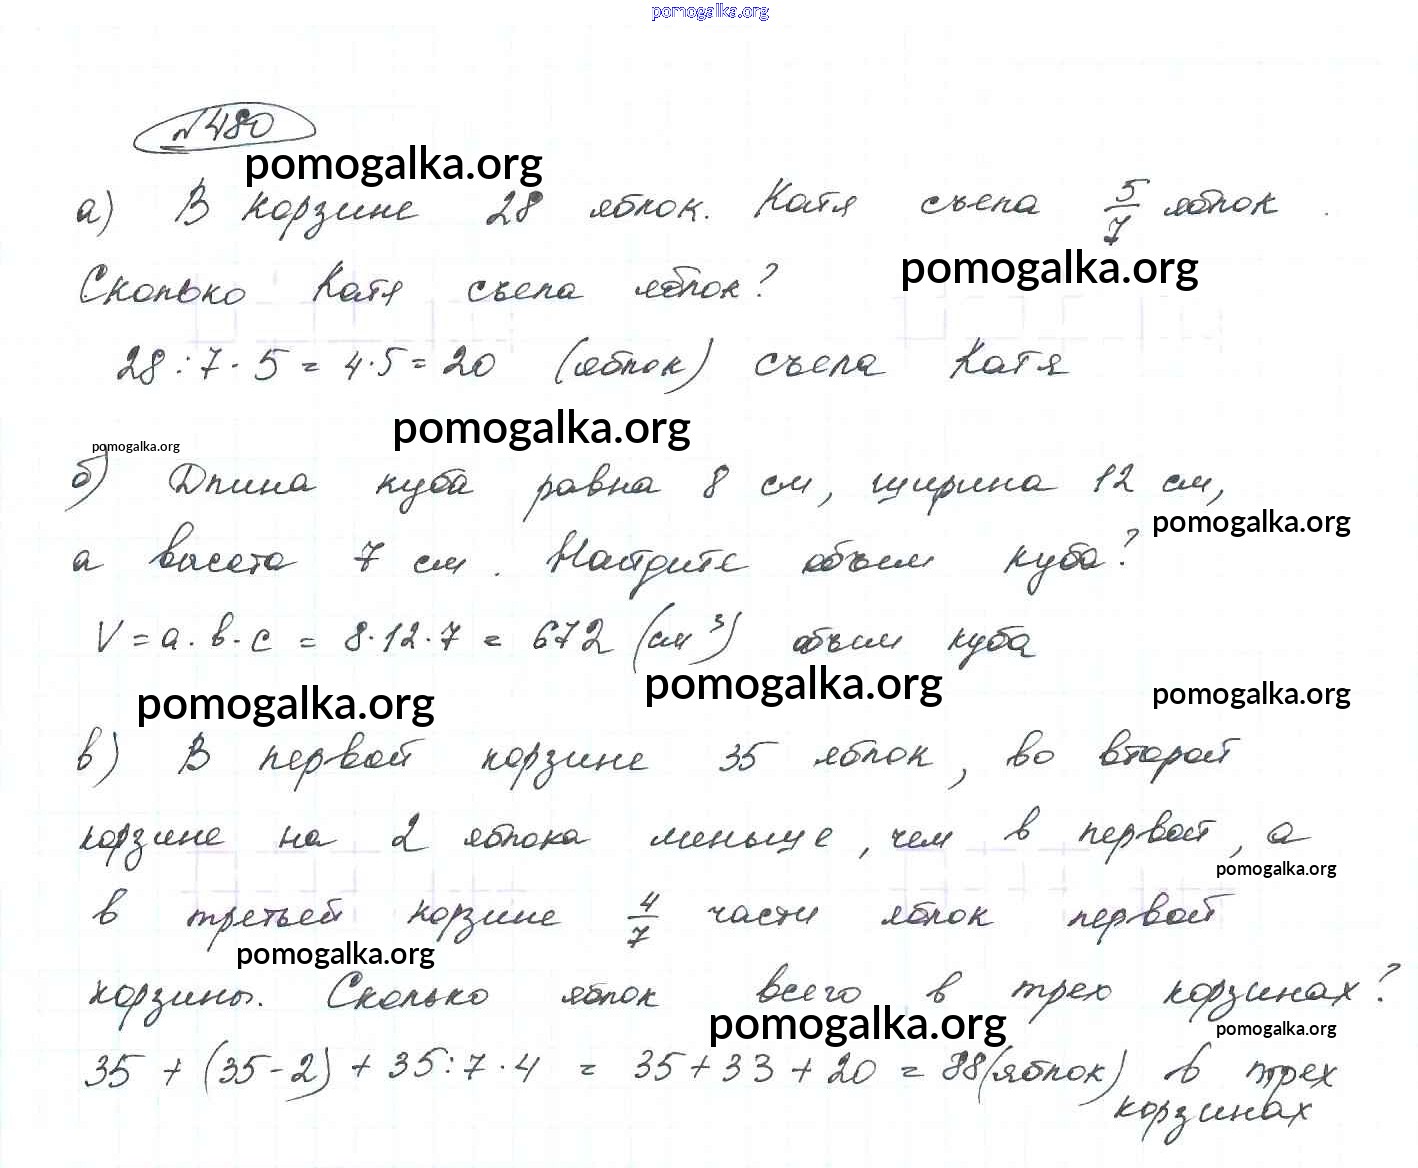 pomogalka.org
№480
pomogalka.org
а) В корзине 28 яблок. Катя съела 5/7 яблок.
pomogalka.org
Сколько Катя съела яблок?
28 : 7 · 5 = 4 · 5 = 20 (яблок) съела Катя
pomogalka.org
pomogalka.org
б) Длина куба равна 8 см, ширина 12 см,
pomogalka.org
а высота 7 см. Найдите объем куба?
V = a · b · c = 8 · 12 · 7 = 672 (см³) объем куба
pomogalka.org
pomogalka.org
pomogalka.org
в) В первой корзине 35 яблок, во второй
корзине на 2 яблока меньше, чем в первой, а
pomogalka.org
в третьей корзине 4/7 части яблок первой
pomogalka.org
корзины. Сколько яблок всего в трех корзинах?
pomogalka.org
pomogalka.org
35 + (35 - 2) + 35 : 7 · 4 = 35 + 33 + 20 = 88 (яблок) в трех
корзинах